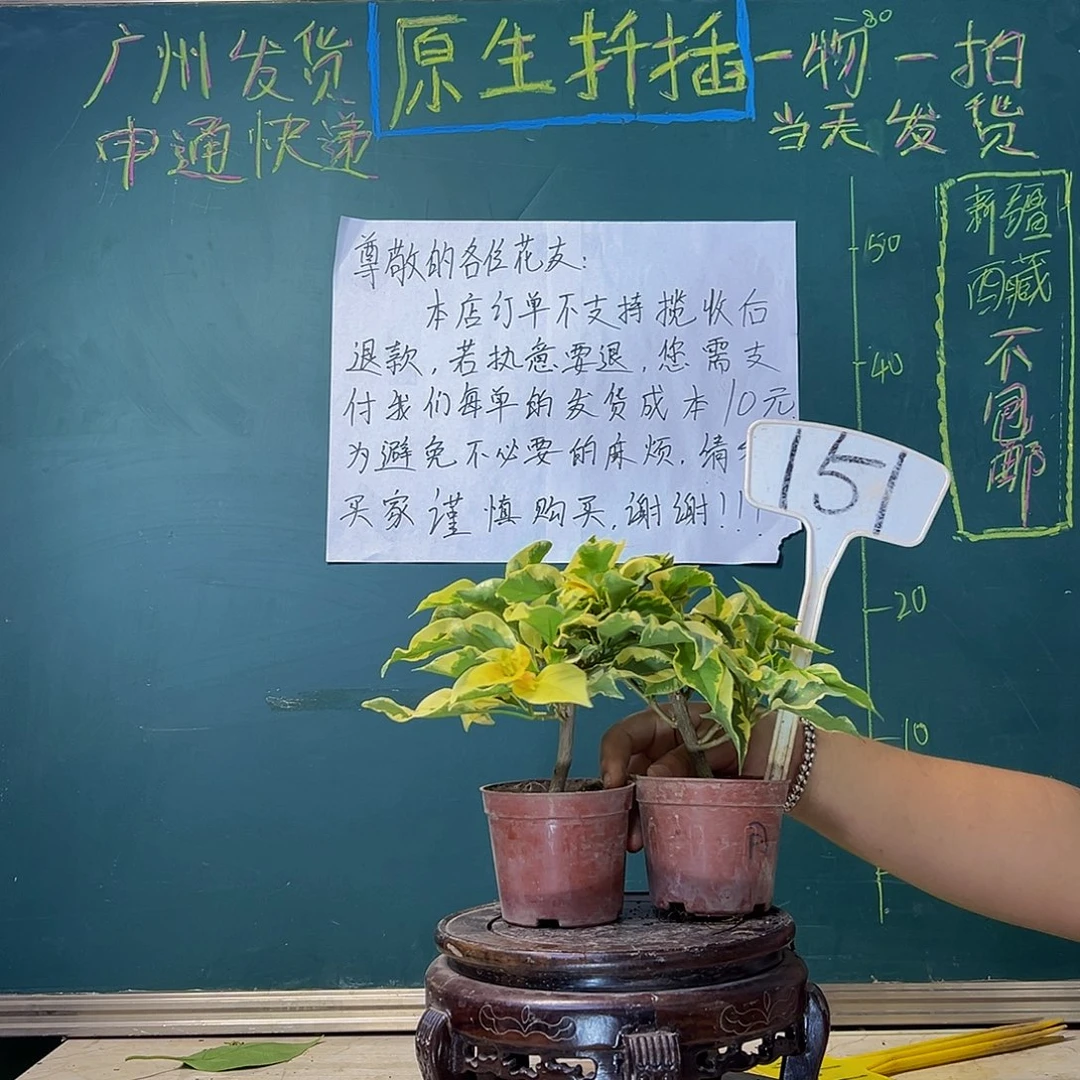 广州发货
申通快递
原生扦插
一物一拍
当天发货
新疆
西藏
不
包
邮
50
40
20
10
尊敬的各位花友:
本店订单不支持揽收后
退款,若执意要退,您需支
付我们每单的发货成本10元
为避免不必要的麻烦.请
买家谨慎购买,谢谢!!!
151